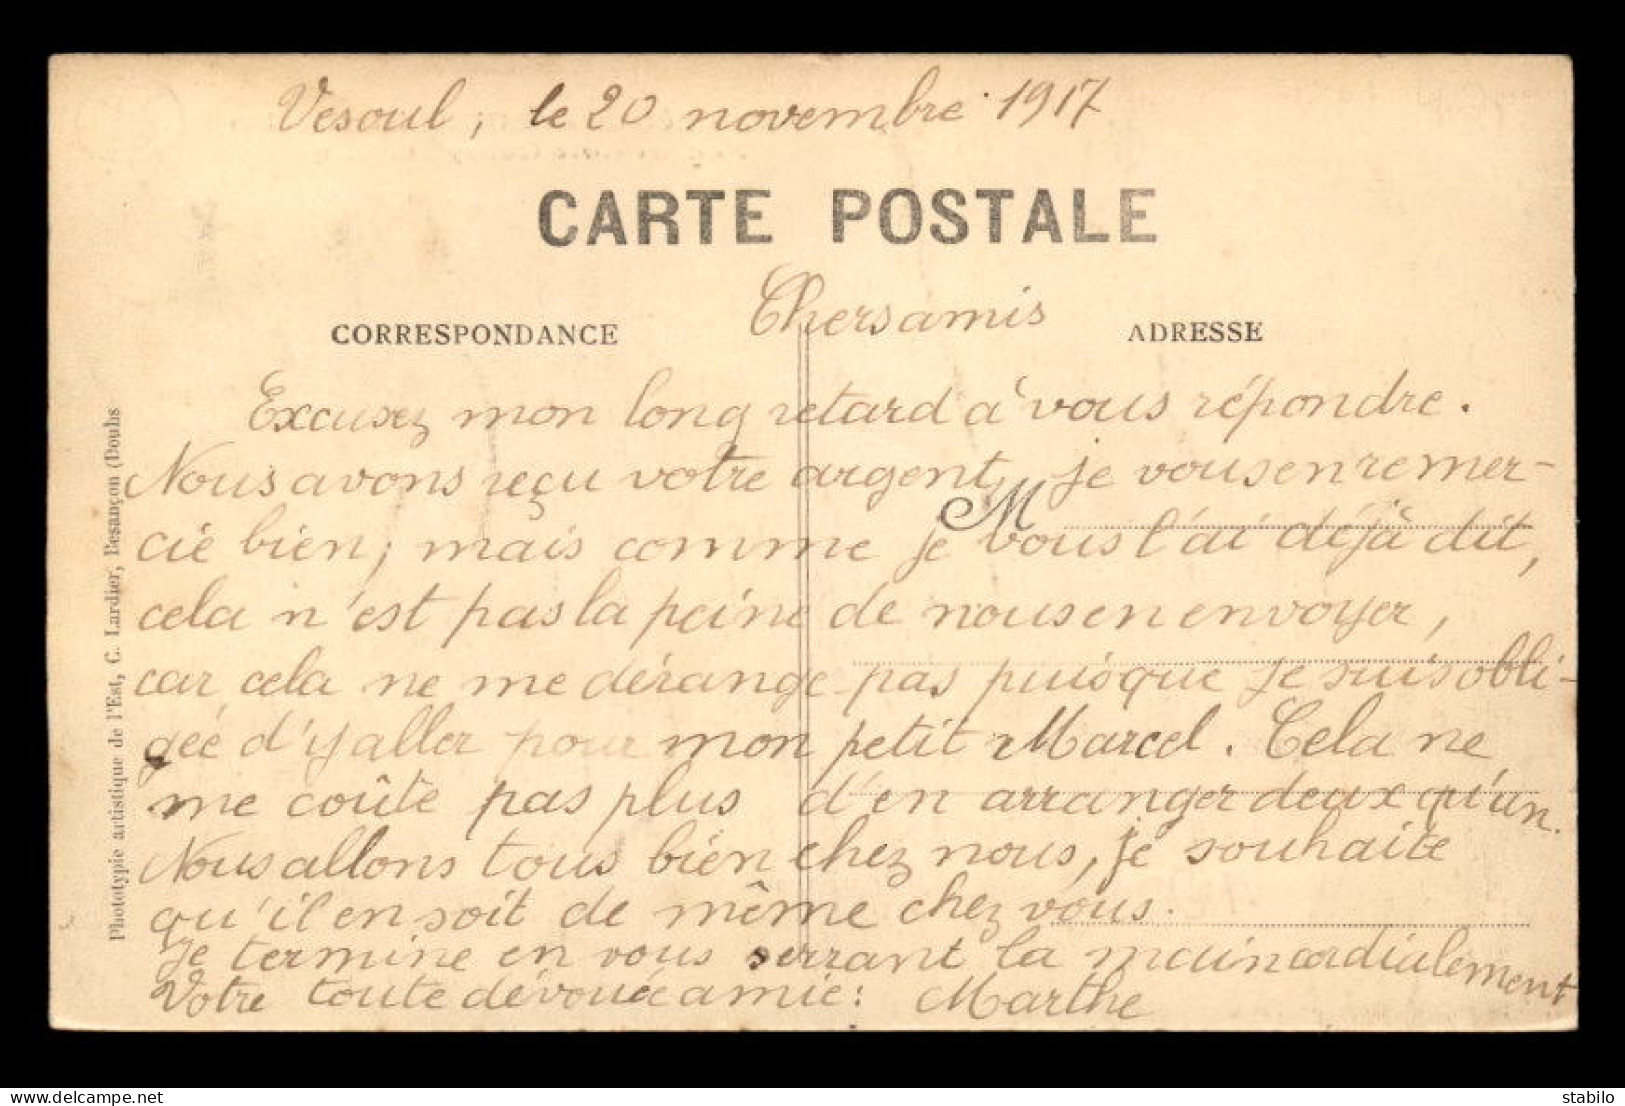 Vesoul, le 20 novembre 1917
CARTE POSTALE
Chers amis
CORRESPONDANCE
ADRESSE
Excusez mon long retard à vous répondre.
Nous avons reçu votre argent, je vous en remer-
M
cie bien; mais comme je vous l'ai déjà dit,
cela n'est pas la peine de nous en envoyer,
car cela ne me dérange pas puisque je suis obli-
gée d'y aller pour mon petit Marcel. Cela ne
me coûte pas plus d'en arranger deux qu'un.
Nous allons tous bien chez nous, je souhaite
qu'il en soit de même chez vous.
Je termine en vous serrant la main cordialement
Votre toute dévouée amie: Marthe
Phototypie artistique de l'Est, C. Lardier, Besançon (Doubs
delcampe.net
stabilo